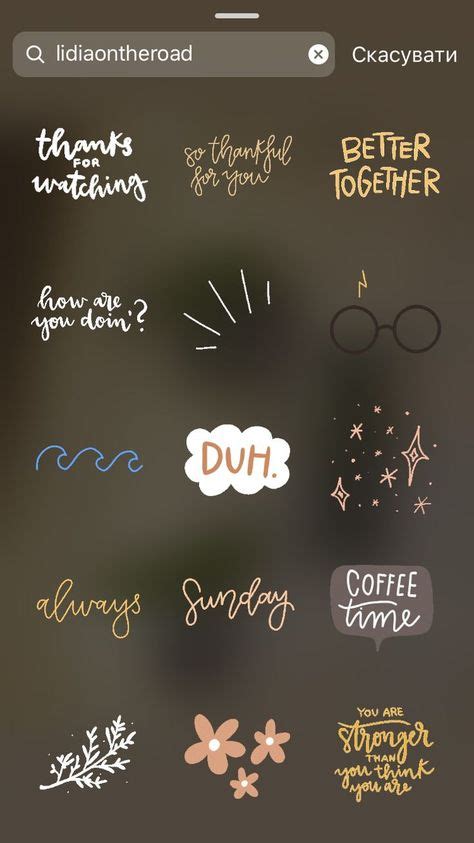 lidiaontheroad
Скасувати
thanks
FOR
watching
so thankful
for you
BETTER
TOGETHER
how are
you doin'?
DUH.
always
Sunday
COFFEE
time
YOU ARE
stronger
THAN
you think
you are